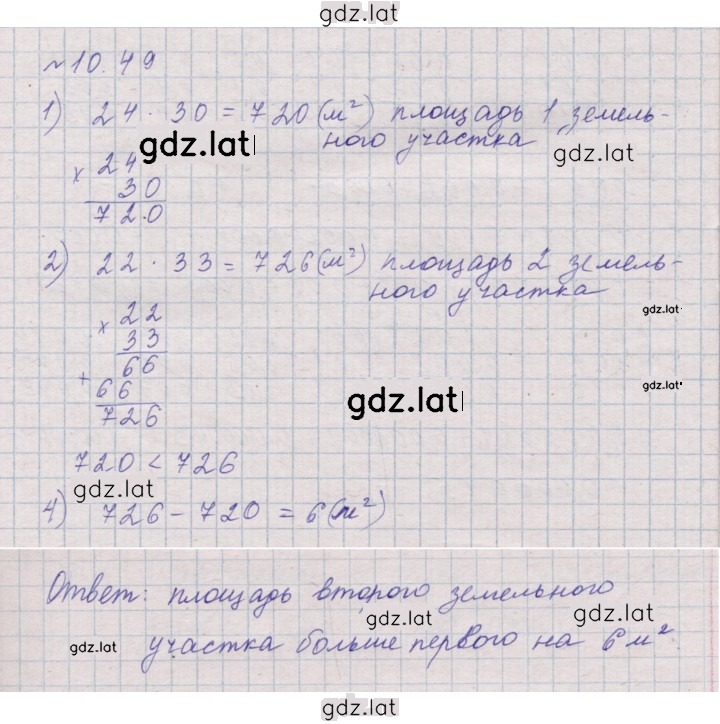 gdz.lat
№10.49
1) 24 · 30 = 720 (м²) площадь 1 земель-
ного участка
gdz.lat
gdz.lat
× 24
30
720
2) 22 · 33 = 726 (м²) площадь 2 земель-
ного участка
gdz.lat
× 22
33
66
+
66
726
gdz.lat
gdz.lat
720 < 726
gdz.lat
4) 726 - 720 = 6 (м²)
Ответ: площадь второго земельного
gdz.lat
gdz.lat
gdz.lat
участка больше первого на 6 м².
gdz.lat